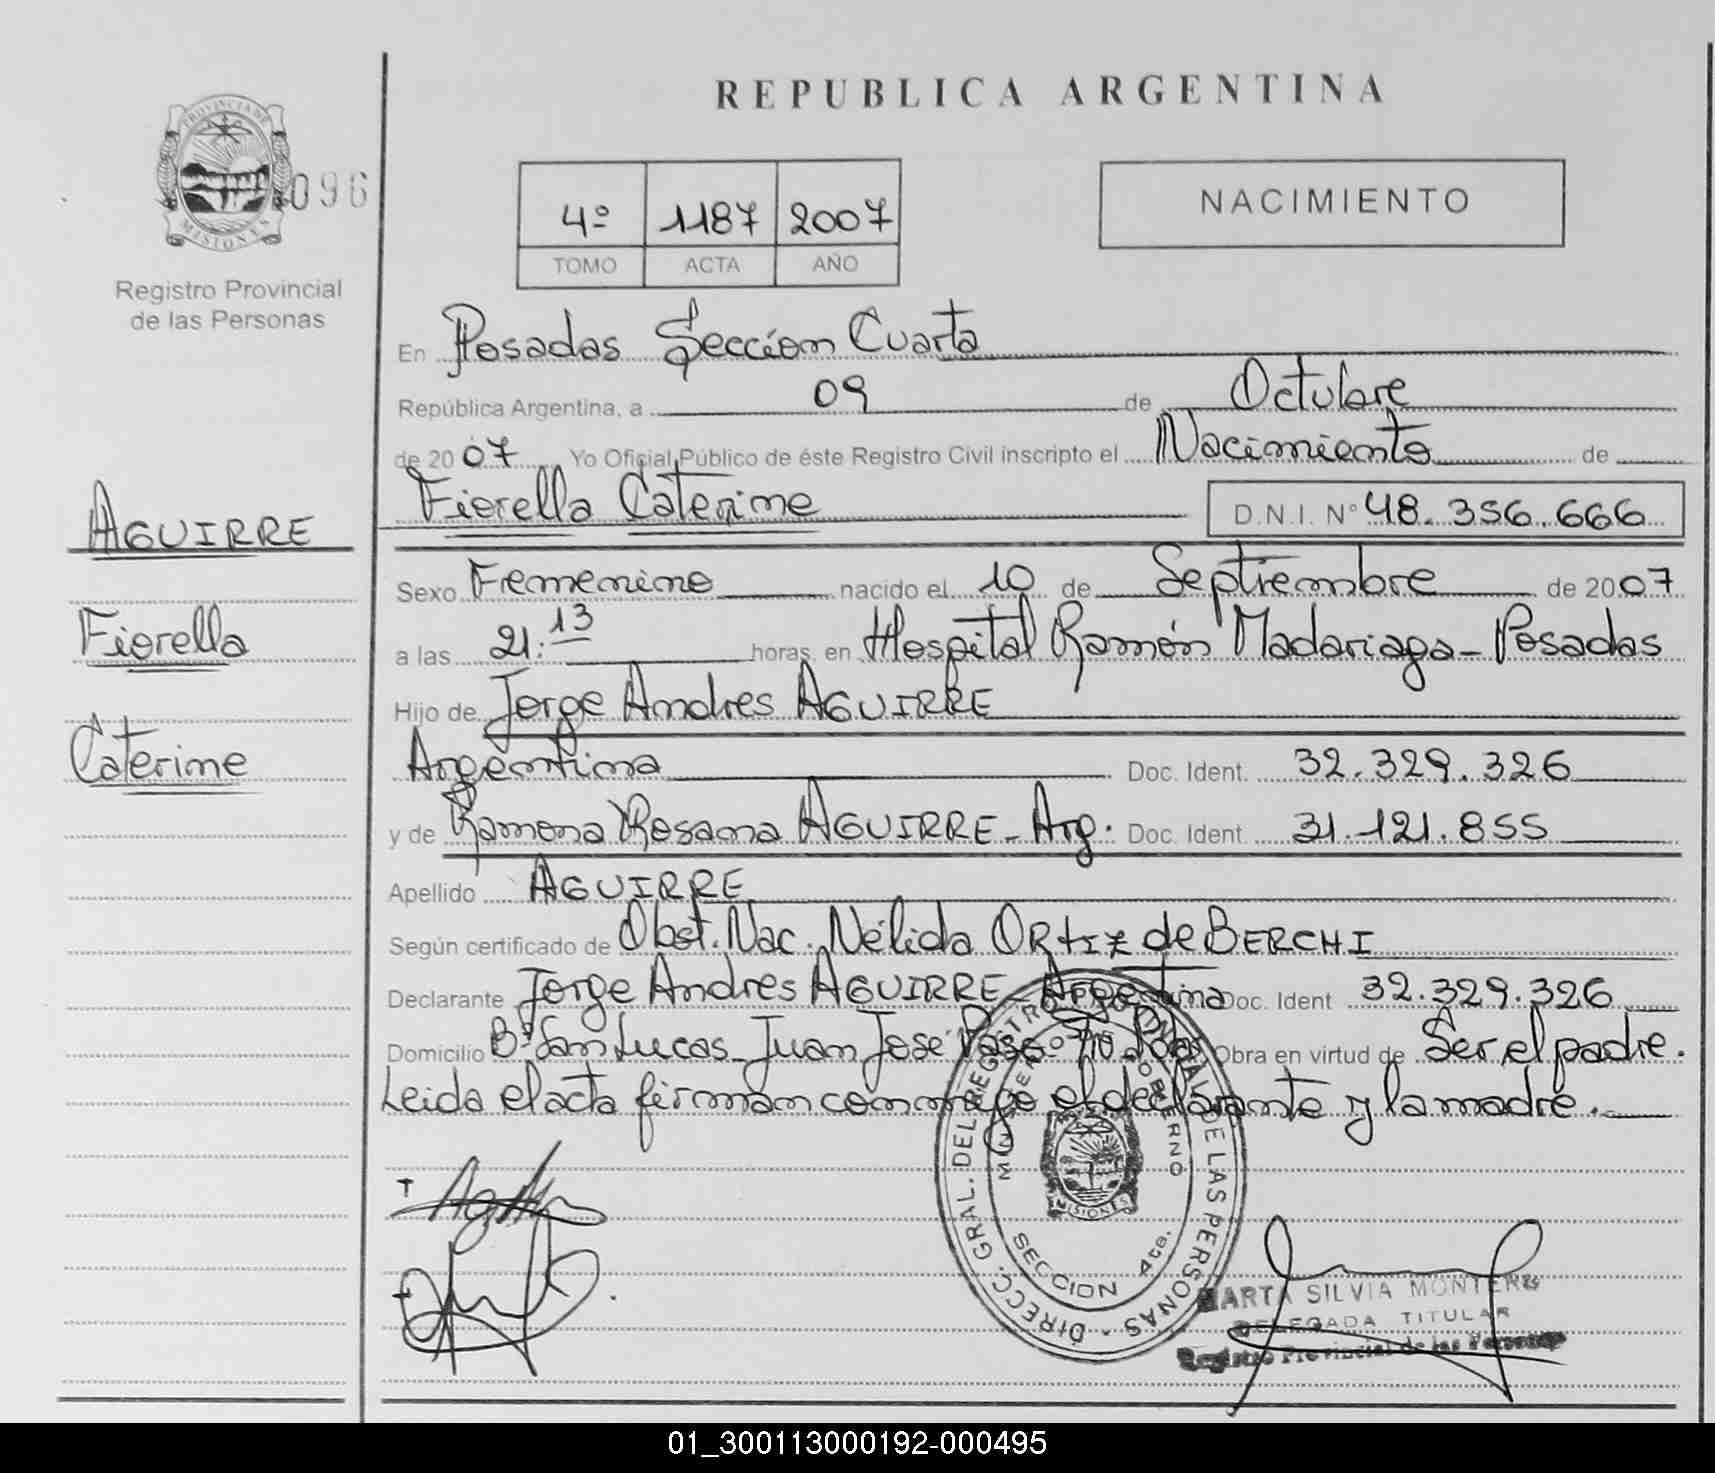 REPUBLICA ARGENTINA
PROVINCIA DE
MISIONES
096
Registro Provincial
de las Personas
4º 1187 2007
TOMO ACTA AÑO
NACIMIENTO
En Posadas Sección Cuarta
República Argentina, a 09 de Octubre
de 2007 Yo Oficial Público de éste Registro Civil inscripto el Nacimiento de
Fiorella Caterine D.N.I. Nº 48.356.666
AGUIRRE
Fiorella
Caterine
Sexo Femenino nacido el 10 de Septiembre de 2007
a las 21:13 horas, en Hospital Ramón Madariaga - Posadas
Hijo de Jorge Andres AGUIRRE
Argentina Doc. Ident. 32.329.326
y de Ramona Rosana AGUIRRE - Arg. Doc. Ident. 31.121.855
Apellido AGUIRRE
Según certificado de Obst. Nac. Nélida ORTIZ de BERCHI
Declarante Jorge Andres AGUIRRE - Argentina Doc. Ident 32.329.326
Domicilio Bº San Lucas - Juan José Paso Obra en virtud de Ser el padre.
Leida el acta firman conmigo el declarante y la madre.
DIRECC. GRAL. DEL REGISTRO PROVINCIAL DE LAS PERSONAS
SECCION 4ta.
MISIONES
MARTA SILVIA MONTERO
DELEGADA TITULAR
Registro Provincial de las Personas
01_300113000192-000495